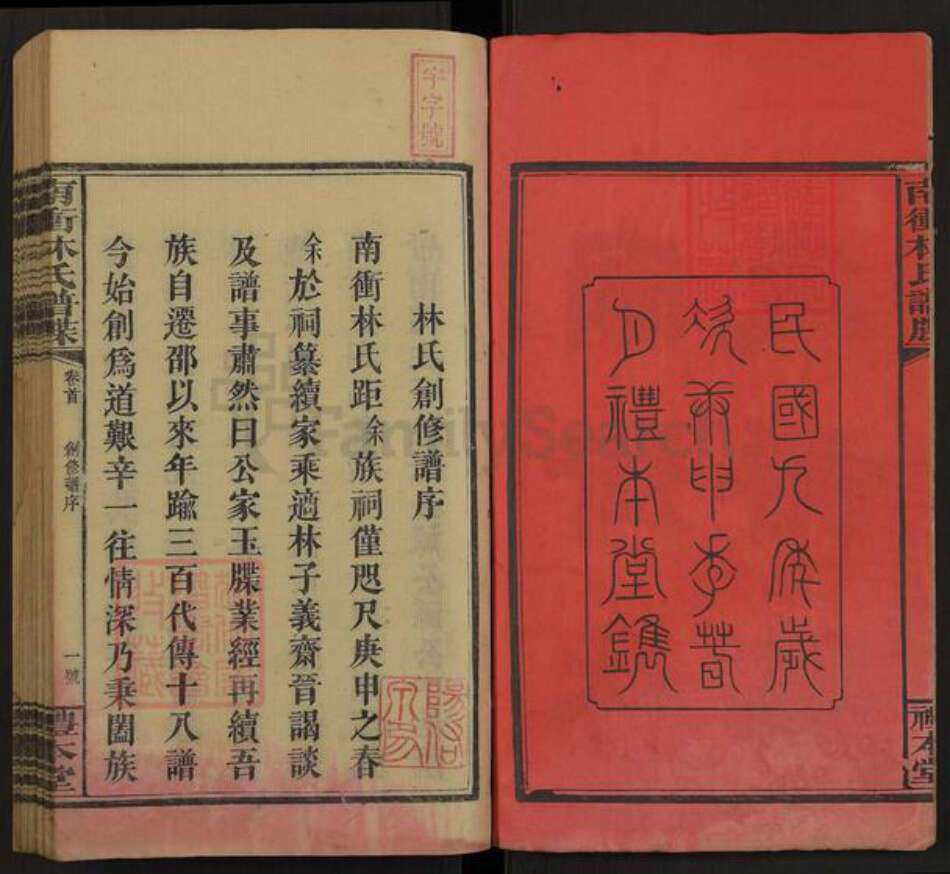 南衝林氏譜牒
民國九年歲
次庚申季春
月禮本堂鐫
禮本堂
字字號
林氏創修譜序
南衝林氏距余族祠僅咫尺庚申之春
余於祠纂續家乘適林子義齋晉謁談
及譜事肅然曰公家玉牒業經再續吾
族自遷邵以來年踰三百代傳十八譜
今始創爲道艱辛一往情深乃秉闔族
南衝林氏譜牒
卷首 創修譜序 一號
禮本堂
FamilySearch